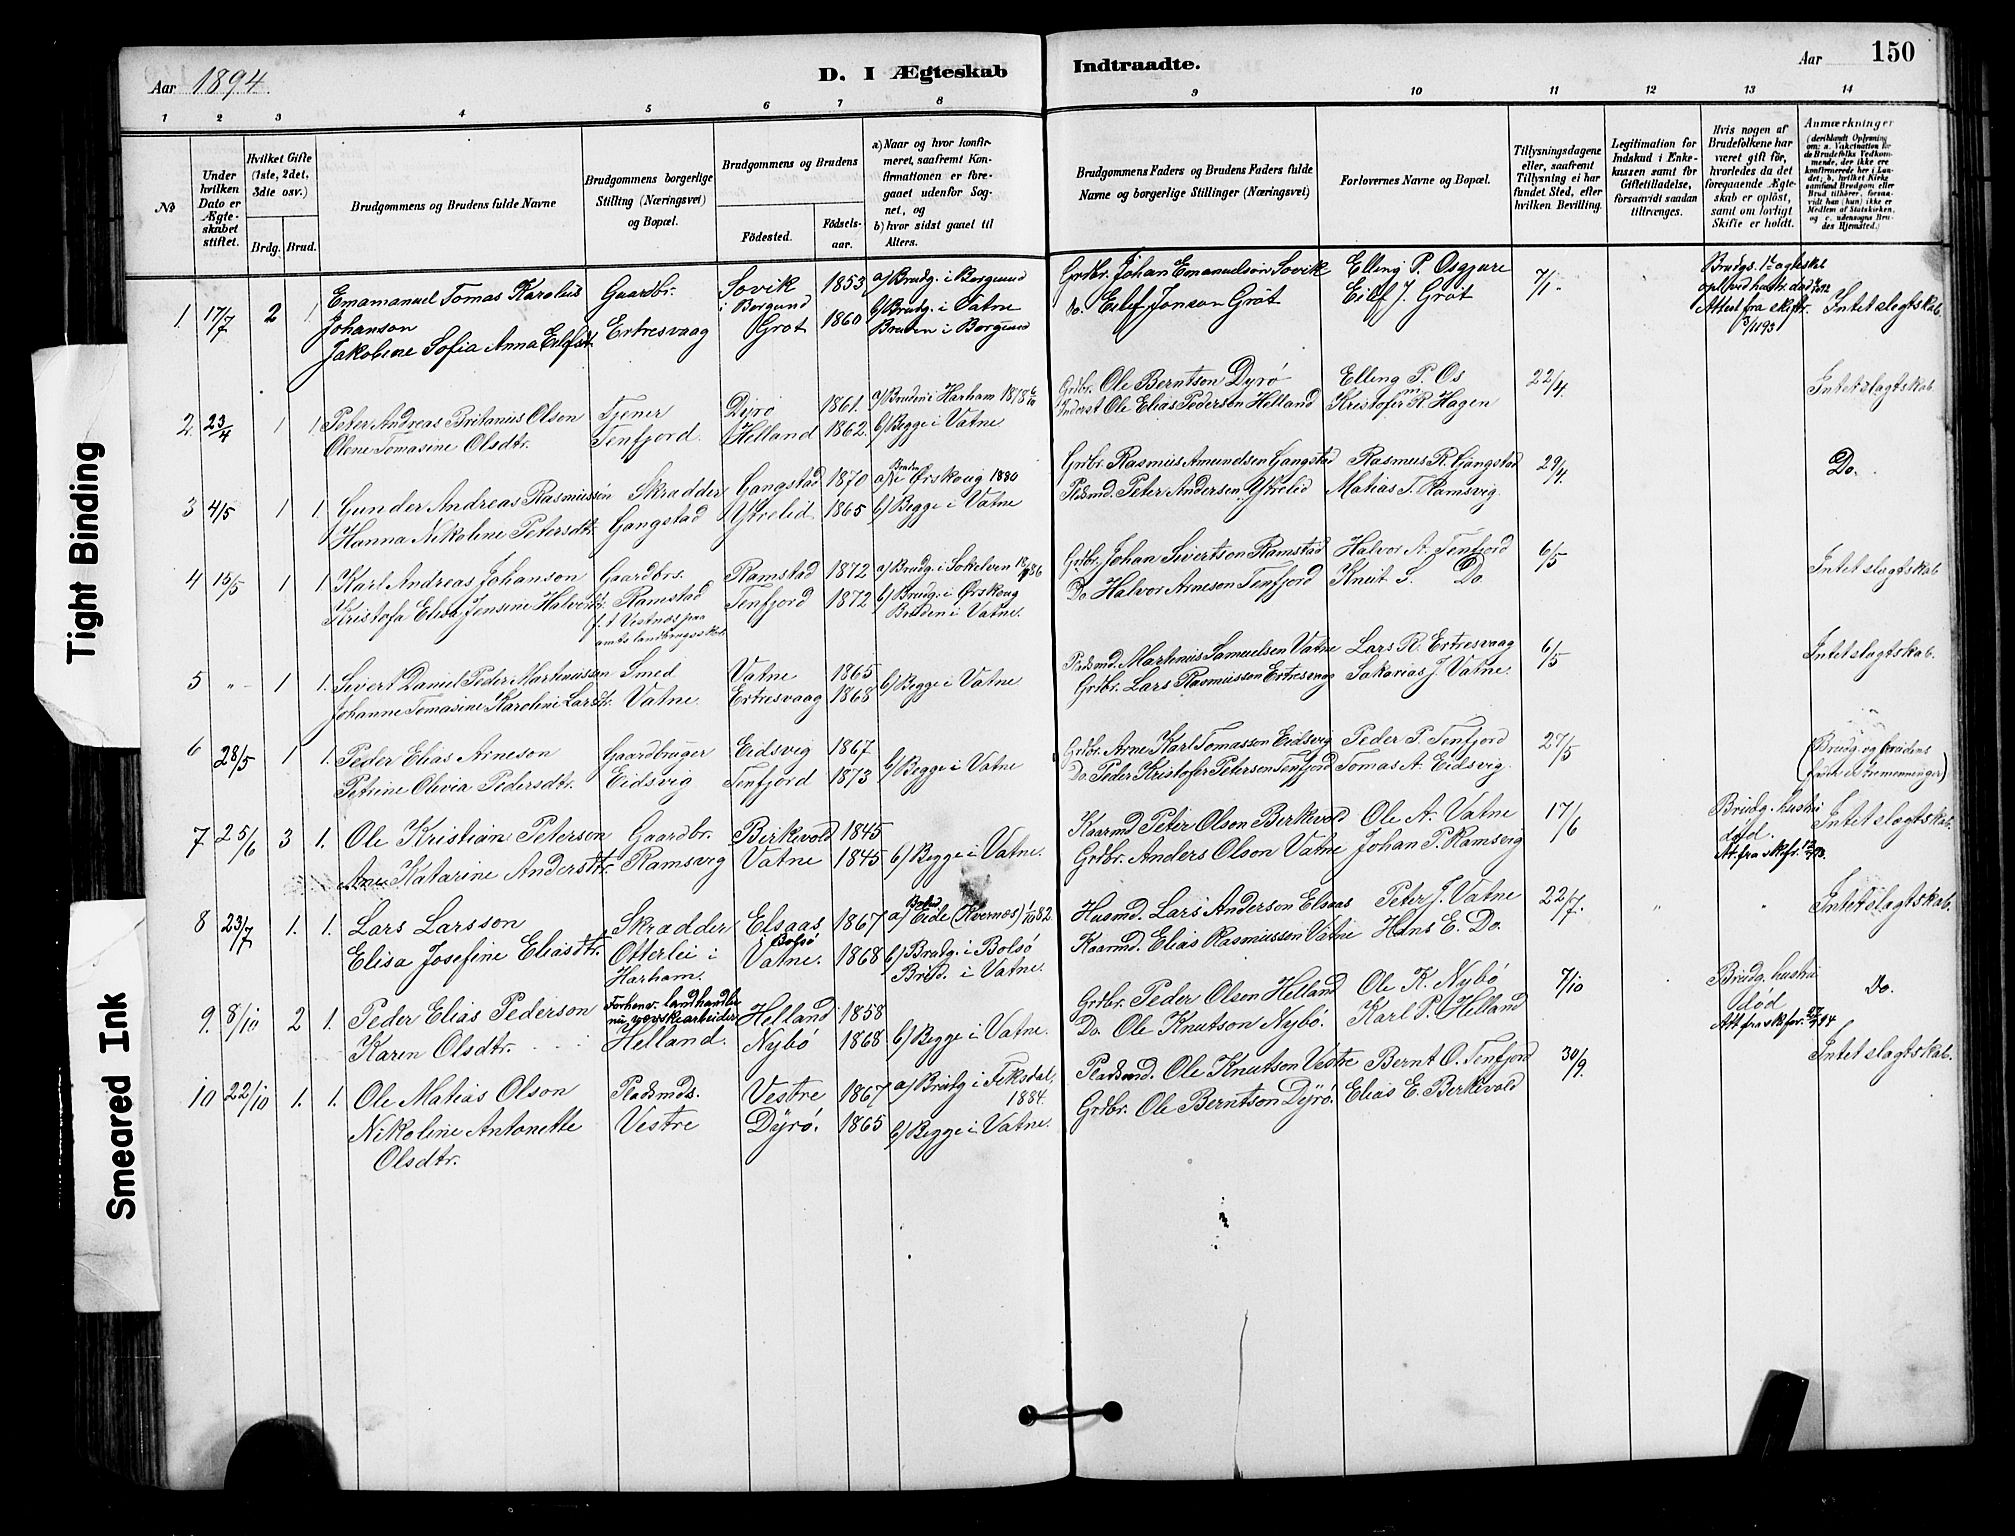 Tight Binding
Smeared Ink
Aar 1894.
D. I Ægteskab Indtraadte.
Aar 150
1 2 3 4 5 6 7 8 9 10 11 12 13 14
No
Under hvilken Dato er Ægteskabet stiftet.
Hvilket Gifte (1ste, 2det, 3die osv.)
Brdg. Brud.
Brudgommens og Brudens fulde Navne
Brudgommens borgerlige Stilling (Næringsvei) og Bopæl.
Brudgommens og Brudens
Födested. Födselsaar.
a) Naar og hvor konfirmeret, saafremt Konfirmationen er foregaaet udenfor Sognet, og
b) hvor sidst gaaet til Alters.
Brudgommens Faders og Brudens Faders fulde Navne og borgerlige Stillinger (Næringsvei)
Forlovernes Navne og Bopæl.
Tillysningsdagene eller, saafremt Tillysning ei har fundet Sted, efter hvilken Bevilling.
Legitimation for Indskud i Enkekassen samt for Giftetilladelse, forsaavidt saadan tiltrænges.
Hvis nogen af Brudefolkene har været gift før, hvorledes da det foregaaende Ægteskab er opløst, samt om lovligt Skifte er holdt.
Anmærkninger
1. 17/7 2 1
Emamanuel Tomas Karolus Johanson
Jakobine Sofia Anna Eilfsdt.
Gaardbr. Ertresvaag
Sovik i Borgund 1853
Grot 1860
a) Brudg. i Borgund
b) Brudg. i Vatne
Bruden i Borgund
Grdbr. Johan Emanuelson Sovik
Do. Eilef Jonson Grot
Elling P. Osgjære
Eilef J. Grot
7/1.
Brudgs. 1ste ægtesk.
Attest fra skiftr.
Intet slagtskab.
2. 23/4 1 1.
Peter Andreas Britanius Olson
Olene Tomasine Olsdtr.
Tjener Tenfjord.
Dyrö 1861.
Helland 1862.
a) Bruden i Harham 1878
b) Begge i Vatne
Grdbr. Ole Berntson Dyrö
Inderst Ole Elias Pederson Helland
Elling P. Os
Kristofer R. Hagen
22/4.
Intet slagtskab.
3 4/5 1 1.
Gunder Andreas Rasmussen
Hanna Nikoline Petersdtr.
Skrædder Gangstad
Gangstad 1870
Ytrelid 1865
a) Bruden i Ørskoug 1880
b) Begge i Vatne
Grdbr. Rasmus Amundsen Gangstad
Pladsmd. Peter Andersen Ytrelid
Rasmus R. Gangstad
Matias T. Ramsvig.
29/4.
Do.
4 15/5 1 1
Karl Andreas Johanson
Kristofa Elisa Jensine Halvorsdtr.
Gaardbrs.
Ramstad
f. t. Vestnes paa
amts landbrugsskole
Ramstad 1872
Tenfjord 1872
a) Brudg. i Sökelven
b) Brudg. i Ørskoug
Bruden i Vatne.
Grdbr. Johan Sivertson Ramstad
Do. Halvor Arneson Tenfjord
Halvor A. Tenfjord
Knut S. Do.
6/5
Intet slagtskab
5 " 1 1.
Sivert Daniel Peder Martinussen
Johanne Tomasine Karoline Larsdtr.
Smed Vatne.
Vatne 1865
Ertresvaag 1868
b) Begge i Vatne
Pladsmd. Martinus Samuelsen Vatne
Grdbr. Lars Rasmusson Ertresvaag
Lars R. Ertresvaag
Sakarias J. Vatne.
6/5
Intet slagtskab.
6 28/5 1 1.
Peder Elias Arneson
Petrine Olivia Pedersdtr.
Gaardbruger Eidsvig
Eidsvig 1867
Tenfjord 1873
b) Begge i Vatne
Grdbr. Arne Karl Tomasson Eidsvig
Do. Peder Kristofer Petersen Tenfjord
Peder P. Tenfjord
Tomas A. Eidsvig.
27/5
(Brudg. og brudens
fædre er tremenninger)
7. 25/6 3 1.
Ole Kristian Peterson
Ane Katarine Andersdtr.
Gaardbr. Ramsvig
Birkevold 1845
Vatne 1845
b) Begge i Vatne.
Kaarmd Peter Olson Berkevold
Grdbr. Anders Olson Vatne
Ole A. Vatne
Johan P. Ramsvig
17/6
Brudg. hustru
död.
At. fra skfr.
Intet slagtskab.
8 23/7 1. 1.
Lars Larsson
Elisa Josefine Eliasdtr.
Skrædder
Otterlei i
Harham.
Elsaas i Bolsö 1867
Vatne. 1868
a) Brud. Eide (Kvernes) 1/10 82.
b) Brudg. i Bolsö
Brud. i Vatne.
Husmd. Lars Anderson Elsaas
Kaarmd. Elias Rasmussen Vatne
Peter J. Vatne
Hans E. Do.
22/7.
" "
Intet slagtskab.
9. 8/10 2 1.
Peder Elias Pederson
Karen Olsdtr.
Forhenv. landhandler
nu verskarbeider
Helland.
Helland 1858
Nybö 1868
b) Begge i Vatne.
Grdbr. Peder Olson Helland
Do. Ole Knutson Nybö.
Ole K. Nybö
Karl P. Helland
7/10
Brudg. hustru
död
Att. fra skfor.
Do.
10 22/10 1. 1.
Ole Matias Olson
Nikoline Antonette
Olsdtr.
Pladsmds. Vestre
Vestre 1867
Dyrö. 1865
a) Brudg i Fiksdal,
1884.
b) Begge i Vatne.
Pladsmd. Ole Knutson Vestre
Grdbr. Ole Berntson Dyrö.
Bernt O. Tenfjord
Elias E. Berkevold
30/9.
Intet slagtskab.